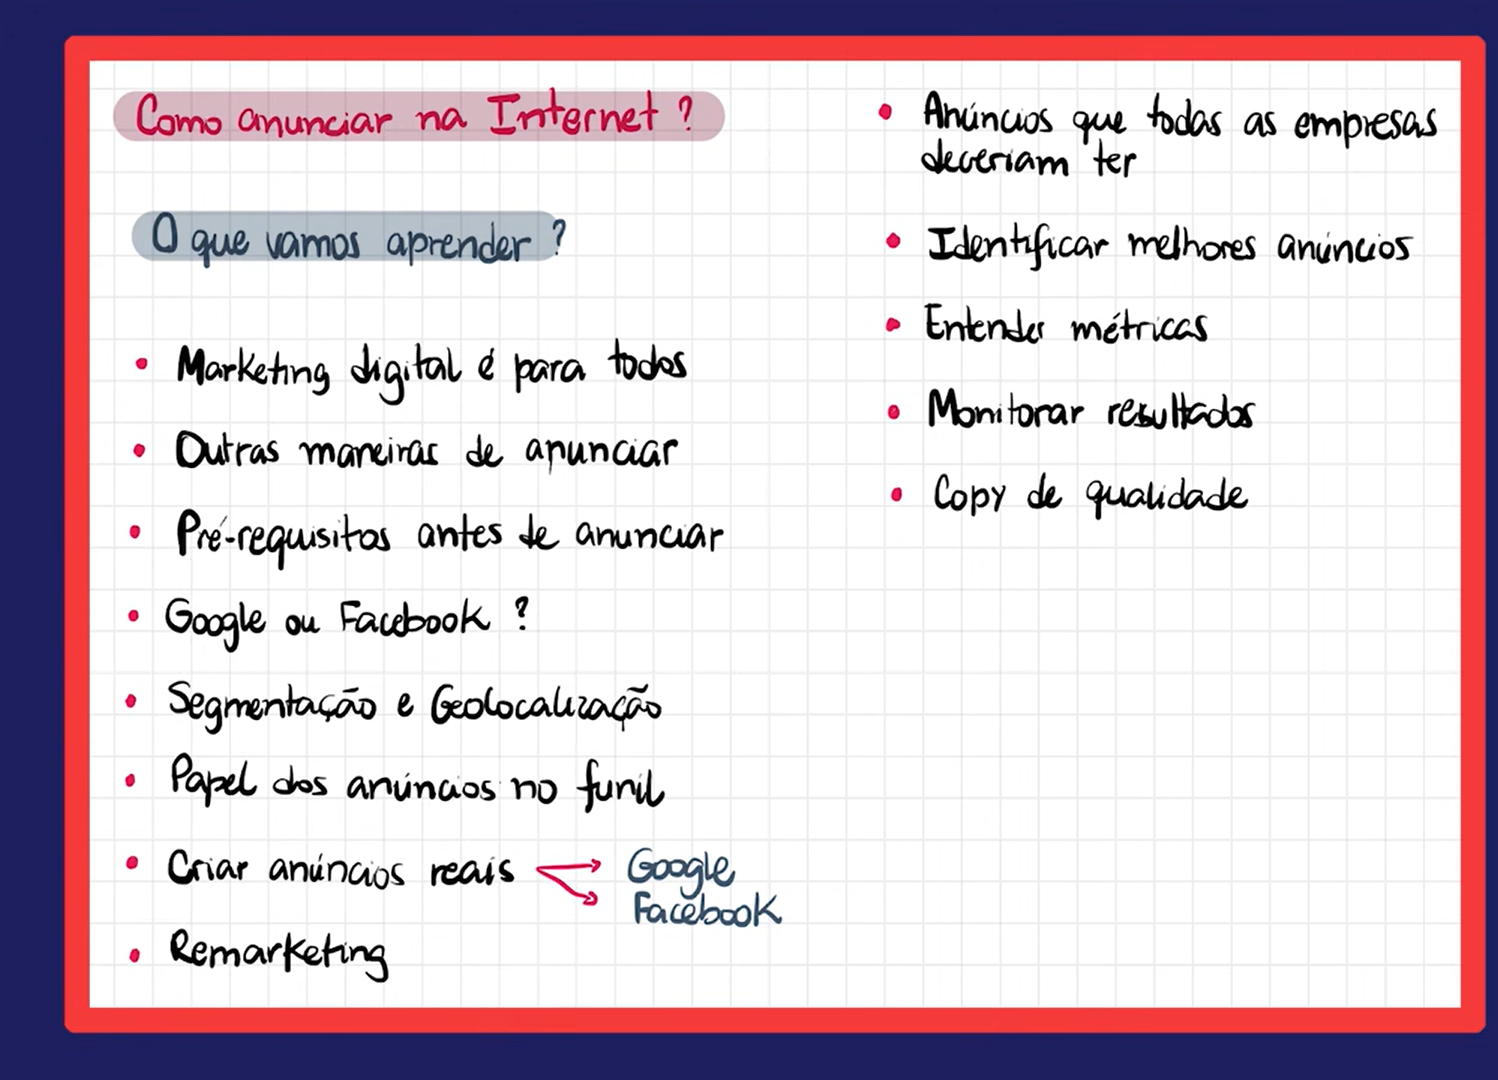 Como anunciar na Internet ?
O que vamos aprender ?
• Marketing digital é para todos
• Outras maneiras de anunciar
• Pré-requisitos antes de anunciar
• Google ou Facebook ?
• Segmentação e Geolocalização
• Papel dos anúncios no funil
• Criar anúncios reais → Google
→ Facebook
• Remarketing
• Anúncios que todas as empresas
deveriam ter
• Identificar melhores anúncios
• Entender métricas
• Monitorar resultados
• Copy de qualidade